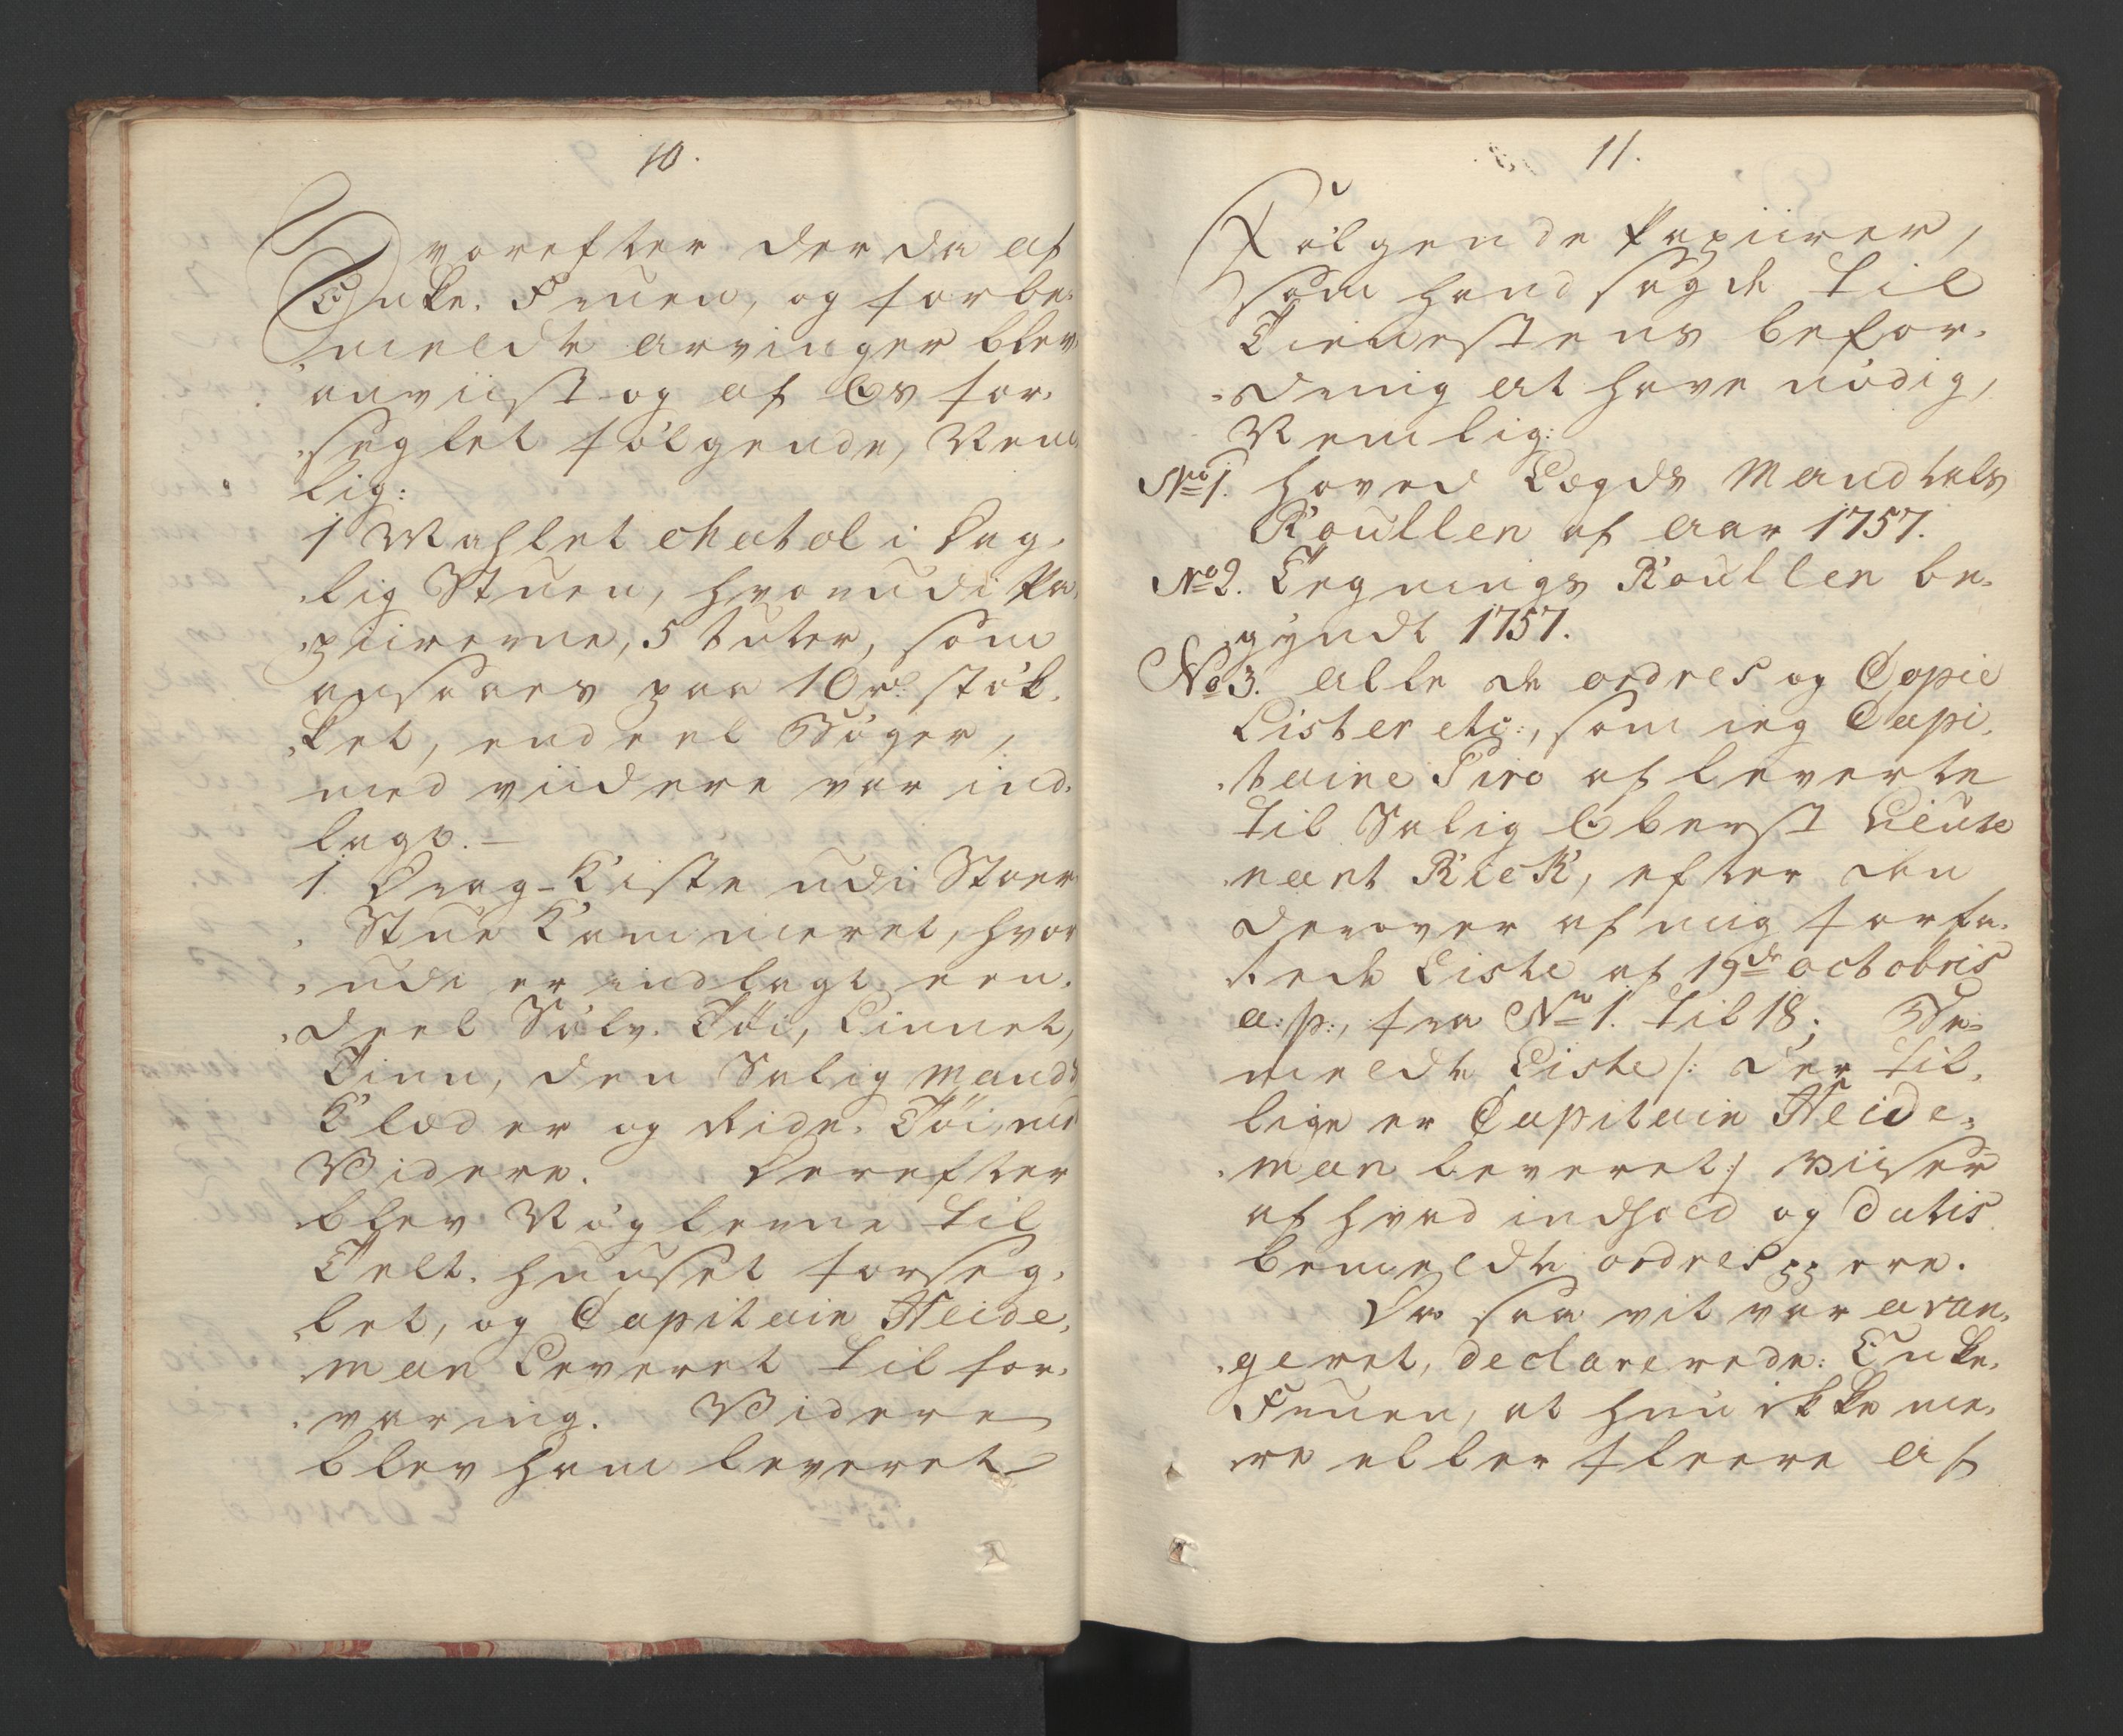 10.
Hvorefter der da af
Enke-Fruen, og forbe-
meldte arvinger blev
anviist og af Os for-
seglet følgende, Nem
lig:
1 Mahlet Chatol i Dag-
lig Stuen, hvorudi Pa-
piirerne, 5 tuter, som
ansaaes paa 10 rd. støk-
ket, endeel Bøger,
med viidere var ind-
lagt. —
1. Drag-Kiste udi Stoer
Stue Kammeret, hvor
udi er indlagt een-
deel Sølv-Tøi, Linnet,
Tinn, den Salig Mands
Klæder og Ride-Tøi, med
Videre. Derefter
blev Nøglerne til
Telt-huuset forseg-
let, og Capitain Heide-
man leveret til for-
varing. Videre
blev ham leveret
11.
Følgende Papiirer,
som hand sagde til
Tienestens befor-
dring at have nødig,
Nemlig:
No 1. Hoved Lægds Mandtals
Roullen af Aar 1757.
No 2. Tegnings Roullen be-
gyndt 1757.
No 3. Alle de ordres og Copie
Lister etc:, som ieg Capi-
taine Siro af leverte
til Salig Oberst Lieute
nant Rick, efter den
derover af mig forfa-
tede Liste af 19de octobris
a: p:, fra No 1. til 18; Be-
meldte Liste /: der til-
lige er Capitain Heide-
man leveret :/ viiser
af hvad indhold og datis
bemeldte ordres pp ere.
Da saa vit var aran-
geret, declarerede: Enke-
Fruen, at hun ikke me-
re eller fleere af